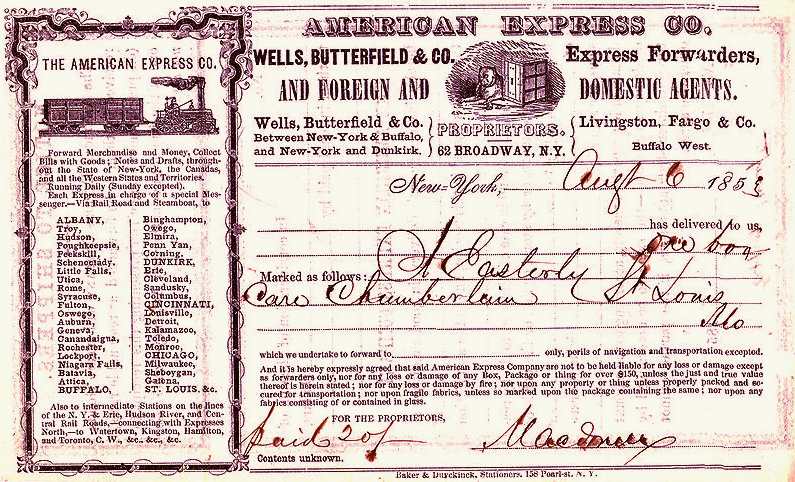 THE AMERICAN EXPRESS CO.
Forward Merchandise and Money, Collect
Bills with Goods; Notes and Drafts, through-
out the State of New-York, the Canadas,
and all the Western States and Territories.
Running Daily (Sunday excepted).
Each Express in charge of a special Mes-
senger.—Via Rail Road and Steamboat, to
ALBANY,
Troy,
Hudson,
Poughkeepsie,
Peekskill,
Schenectady,
Little Falls,
Utica,
Rome,
Syracuse,
Fulton,
Oswego,
Auburn,
Geneva,
Canandaigua,
Rochester,
Lockport,
Niagara Falls,
Batavia,
Attica,
BUFFALO,
Binghampton,
Owego,
Elmira,
Penn Yan,
Corning,
DUNKIRK,
Erie,
Cleveland,
Sandusky,
Columbus,
CINCINNATI,
Louisville,
Detroit,
Kalamazoo,
Toledo,
Monroe,
CHICAGO,
Milwaukee,
Sheboygan,
Galena,
ST. LOUIS, &c.
Also to intermediate Stations on the lines
of the N. Y. & Erie, Hudson River, and Cen-
tral Rail Roads,—connecting with Expresses
North,—to Watertown, Kingston, Hamilton,
and Toronto, C. W., &c., &c., &c.
AMERICAN EXPRESS CO.
WELLS, BUTTERFIELD & CO. Express Forwarders,
AND FOREIGN AND DOMESTIC AGENTS.
Wells, Butterfield & Co.
Between New-York & Buffalo,
and New-York and Dunkirk.
PROPRIETORS.
62 BROADWAY, N.Y.
Livingston, Fargo & Co.
Buffalo West.
New-York, Augt 6 1853
has delivered to us,
one box
Marked as follows: A Easterly
Care Chamberlain St Louis
Mo
which we undertake to forward to only, perils of navigation and transportation excepted.
And it is hereby expressly agreed that said American Express Company are not to be held liable for any loss or damage except
as forwarders only, nor for any loss or damage of any Box, Package or thing for over $150, unless the just and true value
thereof is herein stated; nor for any loss or damage by fire; nor upon any property or thing unless properly packed and se-
cured for transportation; nor upon fragile fabrics, unless so marked upon the package containing the same; nor upon any
fabrics consisting of or contained in glass.
FOR THE PROPRIETORS,
paid 20/
Contents unknown.
Baker & Duyckinck, Stationers, 158 Pearl-st. N. Y.